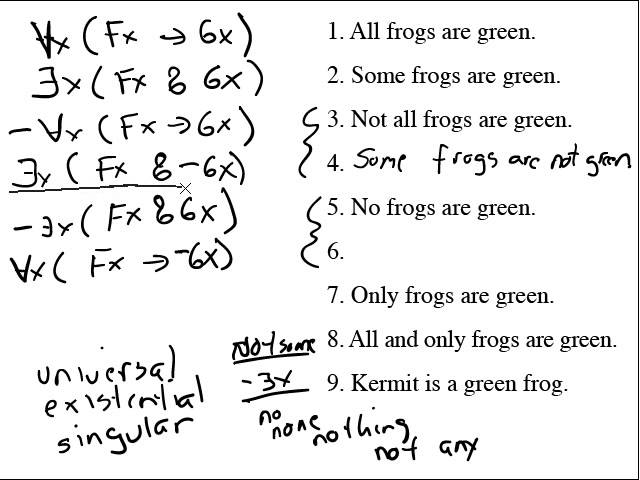 ∀x (Fx → Gx)
1. All frogs are green.
∃x (Fx & Gx)
2. Some frogs are green.
-∀x (Fx → Gx)
3. Not all frogs are green.
∃x (Fx & -Gx)
4. Some frogs are not green
-∃x (Fx & Gx)
5. No frogs are green.
∀x (Fx → -Gx)
6.
7. Only frogs are green.
Not some
8. All and only frogs are green.
universal
-∃x
9. Kermit is a green frog.
existential
singular
no
none
nothing
not any